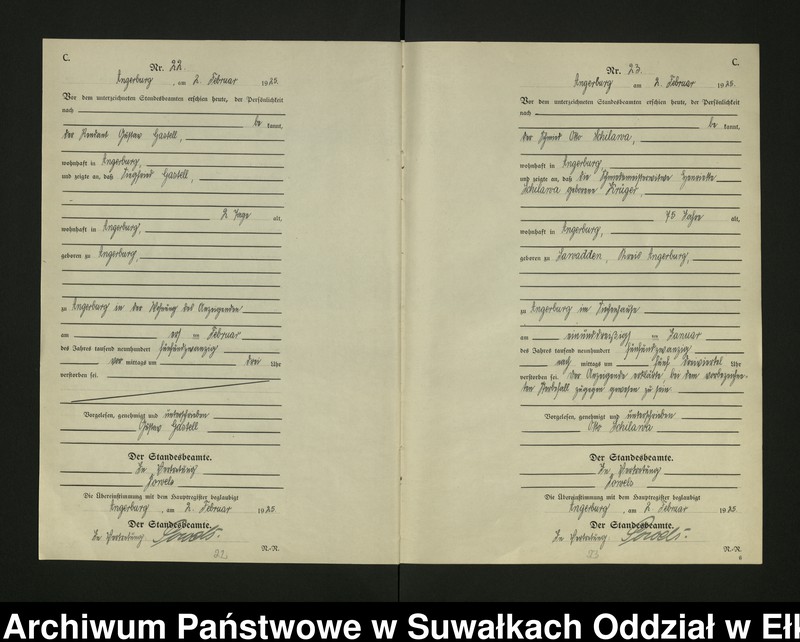 C.
Nr. 22.
Angerburg, am 2. Februar 1925.
Vor dem unterzeichneten Standesbeamten erschien heute, der Persönlichkeit
nach
be kannt,
der Rendant Gustav Gastell,
wohnhaft in Angerburg,
und zeigte an, daß Siegfried Gastell,
2 Tage alt,
wohnhaft in Angerburg,
geboren zu Angerburg,
zu Angerburg in der Wohnung des Anzeigenden
am ersten Februar
des Jahres tausend neunhundert fünfundzwanzig
vor mittags um drei Uhr
verstorben sei.
Vorgelesen, genehmigt und unterschrieben
Gustav Gastell
Der Standesbeamte.
In Vertretung
Die Übereinstimmung mit dem Hauptregister beglaubigt
Angerburg, am 2. Februar 1925
Der Standesbeamte.
In Vertretung
N.-R.
C.
Nr. 23.
Angerburg am 2. Februar 1925.
Vor dem unterzeichneten Standesbeamten erschien heute, der Persönlichkeit
nach
be kannt,
der Schmied Otto Schilawa,
wohnhaft in Angerburg
und zeigte an, daß die Schmiedemeisterwitwe Henriette
Schilawa geborene Krüger,
75 Jahre alt,
wohnhaft in Angerburg,
geboren zu Sawadden, Kreis Angerburg,
zu Angerburg im Siechenhause
am einunddreißigsten Januar
des Jahres tausend neunhundert fünfundzwanzig
nach mittags um fünf dreiviertel Uhr
verstorben sei. Der Anzeigende erklärte, bei dem vorbezeichne-
ten Sterbefall zugegen gewesen zu sein
Vorgelesen, genehmigt und unterschrieben
Otto Schilawa
Der Standesbeamte.
In Vertretung
Die Übereinstimmung mit dem Hauptregister beglaubigt
Angerburg, am 2. Februar 1925
Der Standesbeamte.
In Vertretung
N.-R.
Archiwum Państwowe w Suwałkach Oddział w Eł